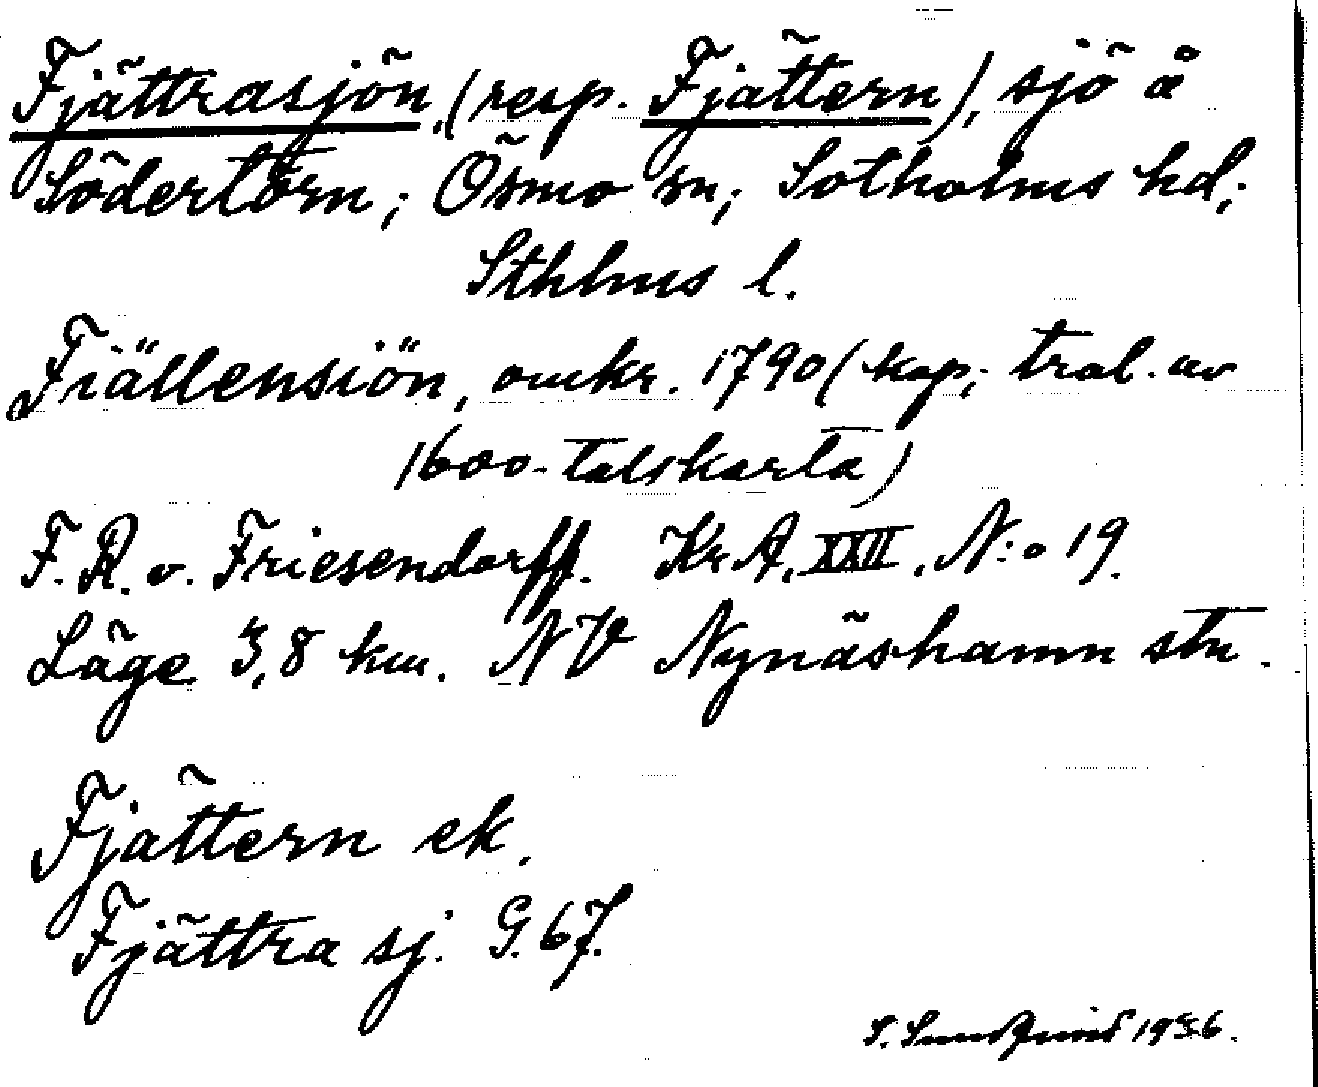 Fjättrasjön, (resp. Fjättern), sjö å
Södertörn; Ösmo sn; Sotholms hd;
Sthlms l.
Fiällensiön, omkr. 1790 (kop; trol. av
1600-talskarta)
F. R. v. Friesendorff. Kr. A. XXII. N:o 19.
Läge 3,8 km. NV Nynäshamn stn.
Fjättern ek.
Fjättra sj. G. 67.
S. Sundqvist 1936.